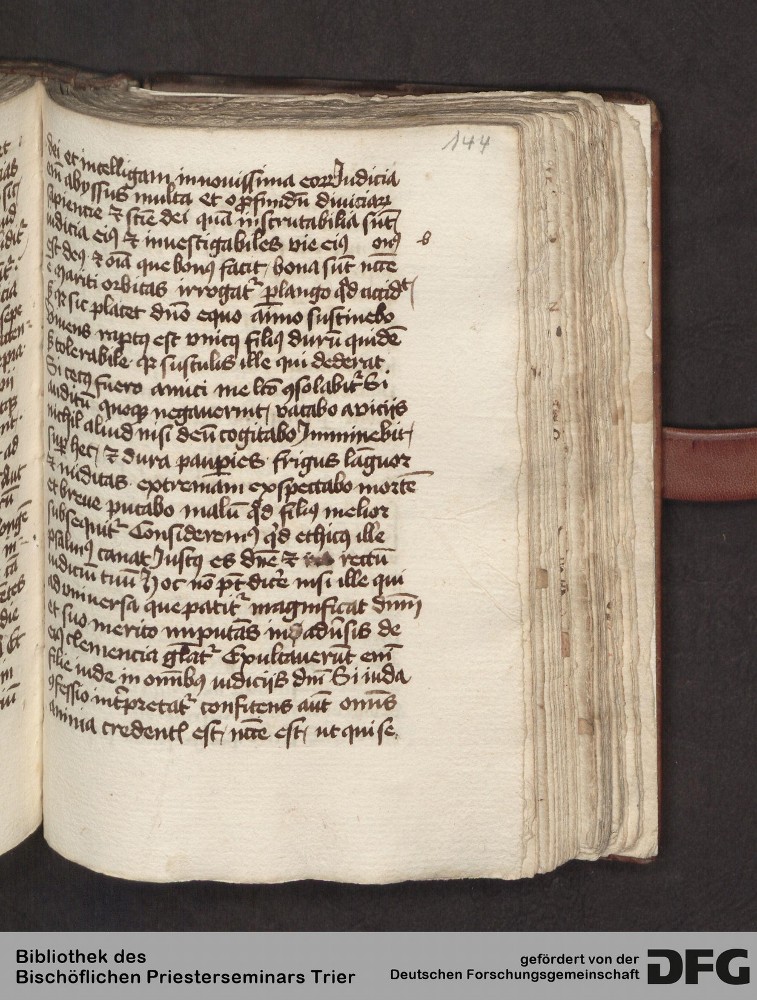 144
dei et intelligam in nouissima eorꝝ Judicia
em̄ abyssus multa et o ꝓfundū diuiciaꝝ
sapiencie ⁊ scīe dei quā inscrutabilia sūt
iudicia eiꝰ ⁊ inuestigabiles vie eiꝰ
est deꝰ ⁊ oīa que bonꝰ facit bona sūt nc̄cē
ē Mariti orbitas irrogat᷑ plango qd̓ accidit
ꝙ sic placet dn̄o equo aīmo sustinebo
raptꝰ est vnicꝰ filiꝰ durū quidē
tolerabile qꝛ sustulit ille qui dederat
Si cecꝰ fuero amici me lc̄o ꝯsolabit᷑ Si
auditū quoqꝫ negauerint vacabo a viciis
nichil aliud nisi deū cogitabo Imminebit
suꝑ hec ⁊ dura pauꝑies frigus lāguor
⁊ nuditas extremam exspectabo mortē
et breue putabo malū qd̓ filiꝰ melior
subsequit᷑ Consideremꝰ qd̓ ethicꝰ ille
psalmꝰ canat Justꝰ es dn̄e ⁊ rectū
iudiciū tuū Hoc nō pt̄ dic̓e nisi ille qui
ad vniuersa que patit᷑ magnificat dnm̄
et suo merito imputās in adūsis de
eiꝰ clemencia gl̄at᷑ Exultauerūt em̄
filie iude in om̄ibꝰ iudiciis dn̄i Si iuda
ꝯfessio int̓pretat᷑ confitens aūt om̄is
anima credentꝭ est nc̄cē est ut qui se
Bibliothek des
Bischöflichen Priesterseminars Trier
gefördert von der
Deutschen Forschungsgemeinschaft
DFG